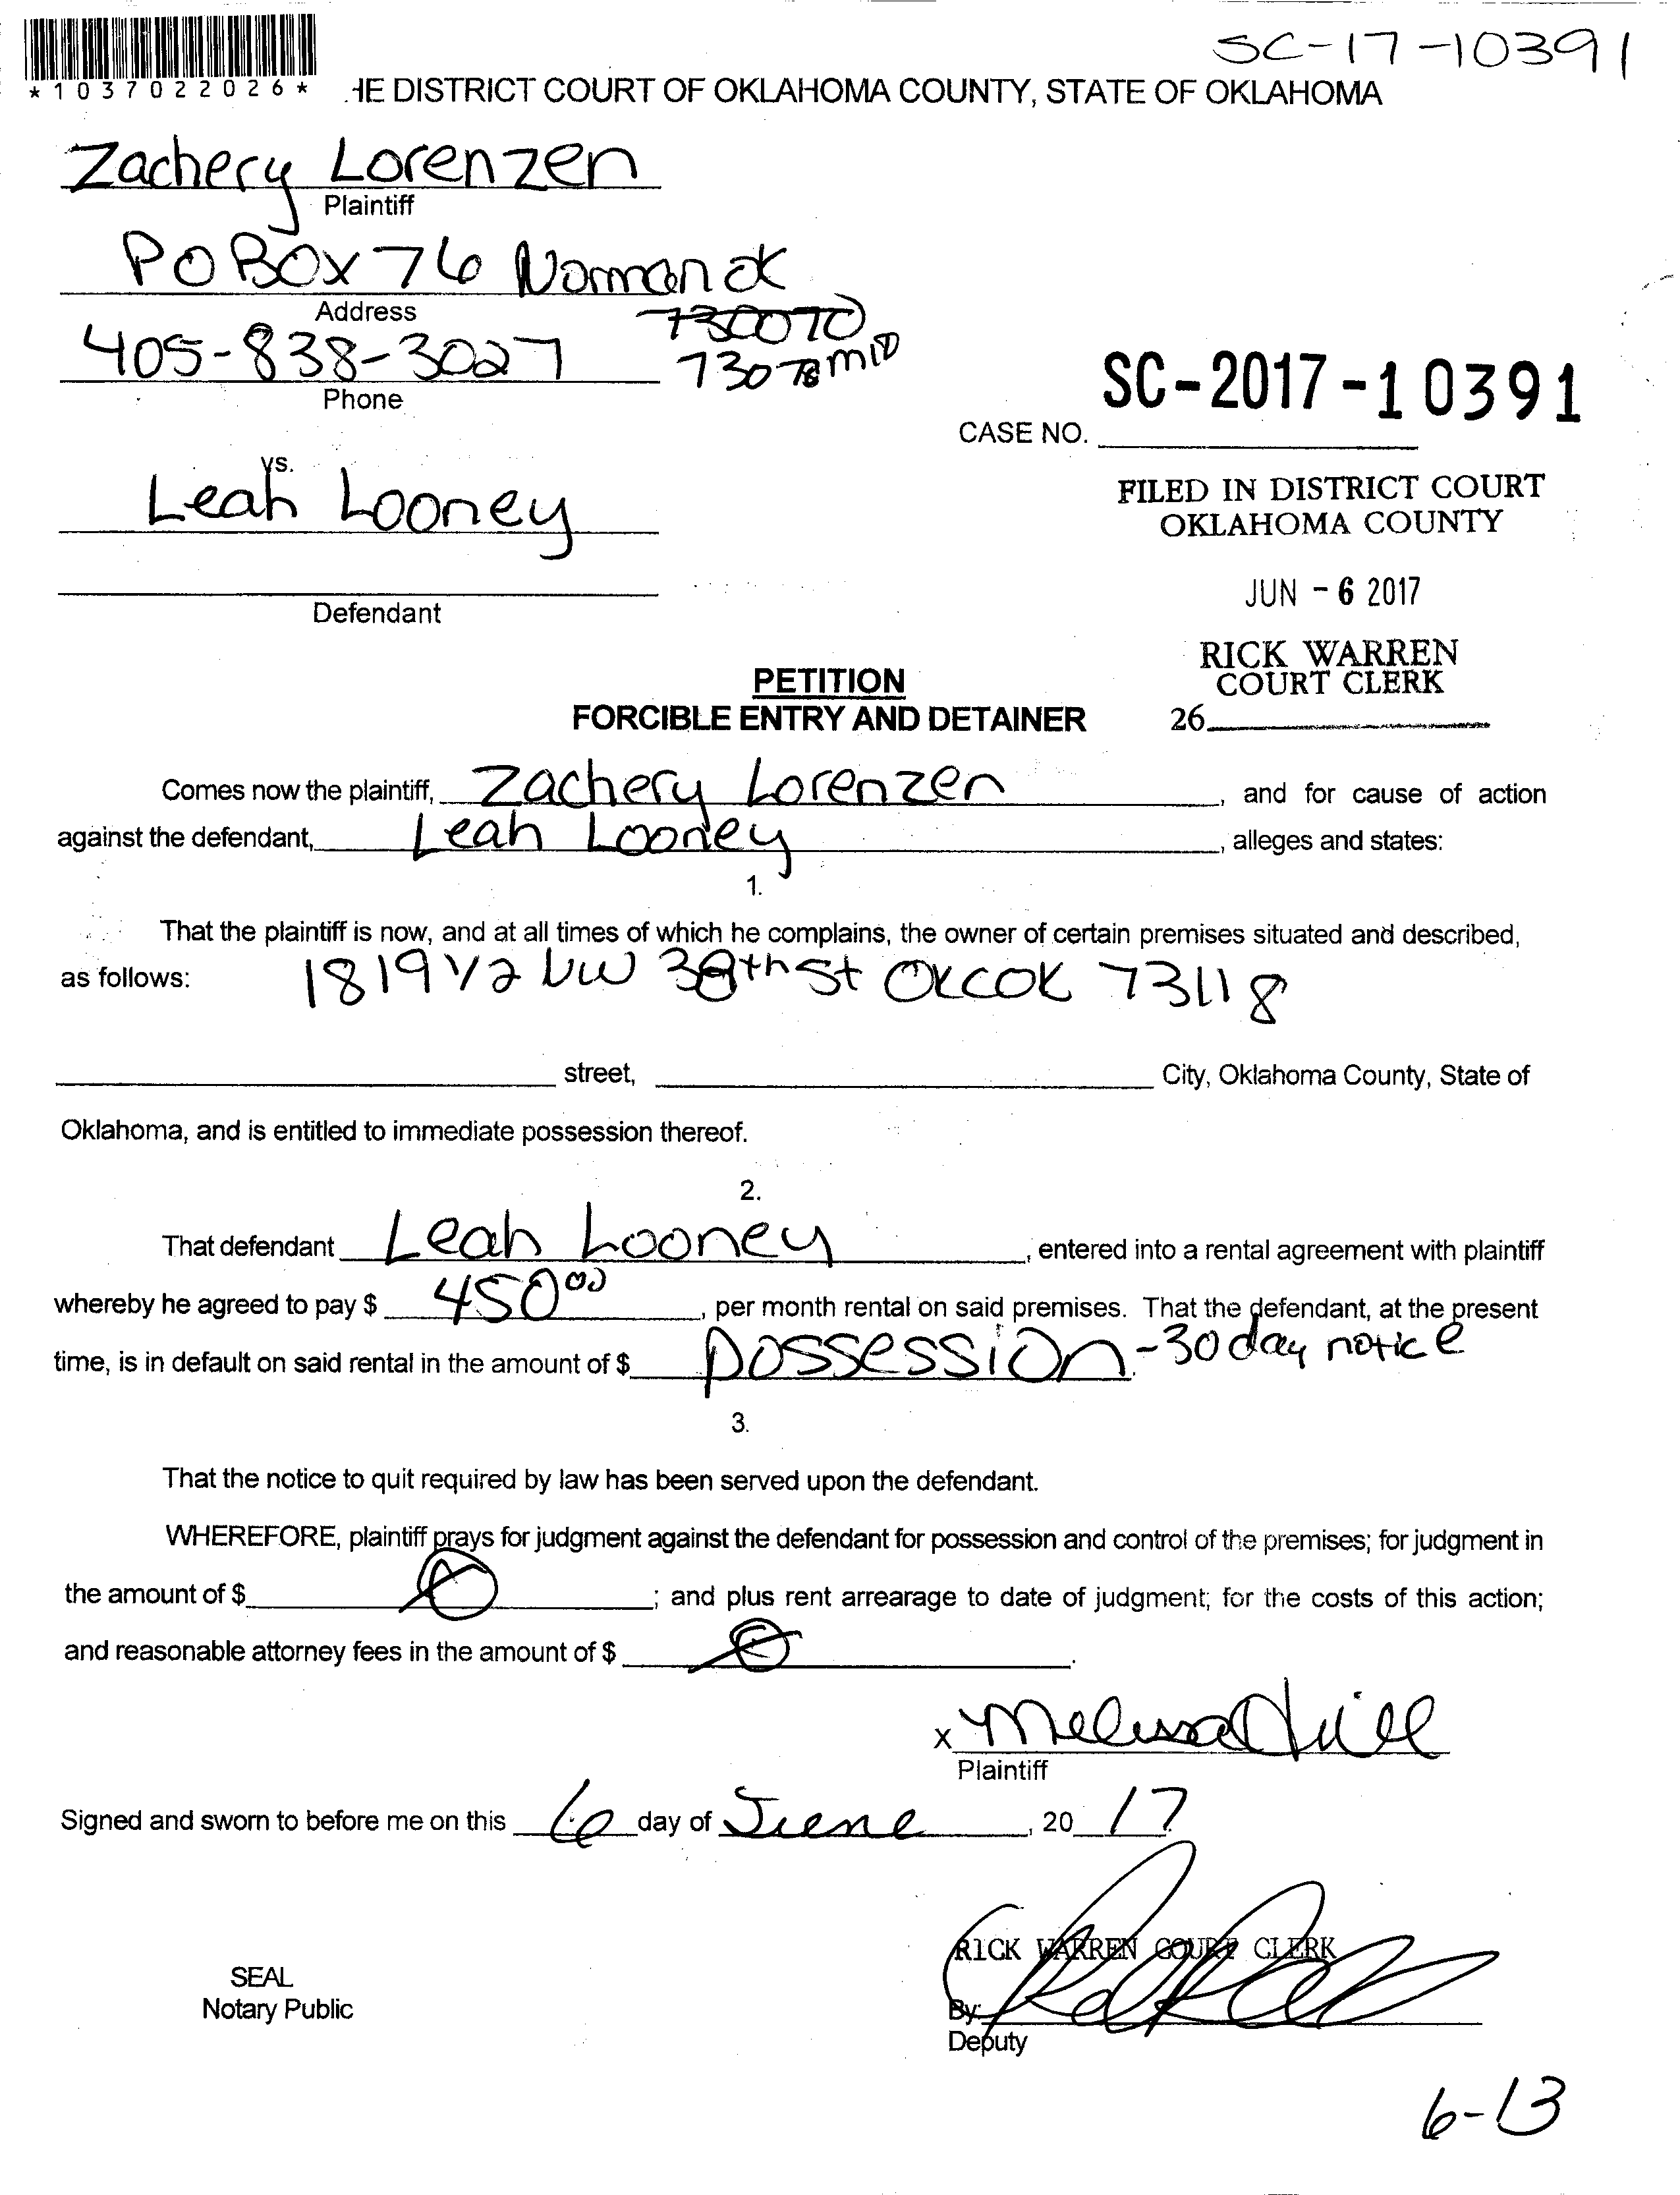 SC-17-10391
*1037022026*
HE DISTRICT COURT OF OKLAHOMA COUNTY, STATE OF OKLAHOMA
Zachery Lorenzen
Plaintiff
PO BOX 76 Norman OK
Address
730070
405-838-3027
73070
Phone
SC-2017-10391
CASE NO.
vs.
Leah Looney
FILED IN DISTRICT COURT
OKLAHOMA COUNTY
JUN - 6 2017
Defendant
RICK WARREN
COURT CLERK
26
PETITION
FORCIBLE ENTRY AND DETAINER
Comes now the plaintiff, Zachery Lorenzen, and for cause of action
against the defendant, Leah Looney, alleges and states:
1.
That the plaintiff is now, and at all times of which he complains, the owner of certain premises situated and described,
as follows: 1819 1/2 NW 38th St OKCOK 73118
street, City, Oklahoma County, State of
Oklahoma, and is entitled to immediate possession thereof.
2.
That defendant Leah Looney, entered into a rental agreement with plaintiff
whereby he agreed to pay $ 450 00, per month rental on said premises. That the defendant, at the present
time, is in default on said rental in the amount of $ possession - 30 day notice
3.
That the notice to quit required by law has been served upon the defendant.
WHEREFORE, plaintiff prays for judgment against the defendant for possession and control of the premises; for judgment in
the amount of $ 0; and plus rent arrearage to date of judgment; for the costs of this action;
and reasonable attorney fees in the amount of $ 0.
x Melissa Hill
Plaintiff
Signed and sworn to before me on this 6 day of June, 20 17
RICK WARREN COURT CLERK
SEAL
Notary Public
By:
Deputy
6-13